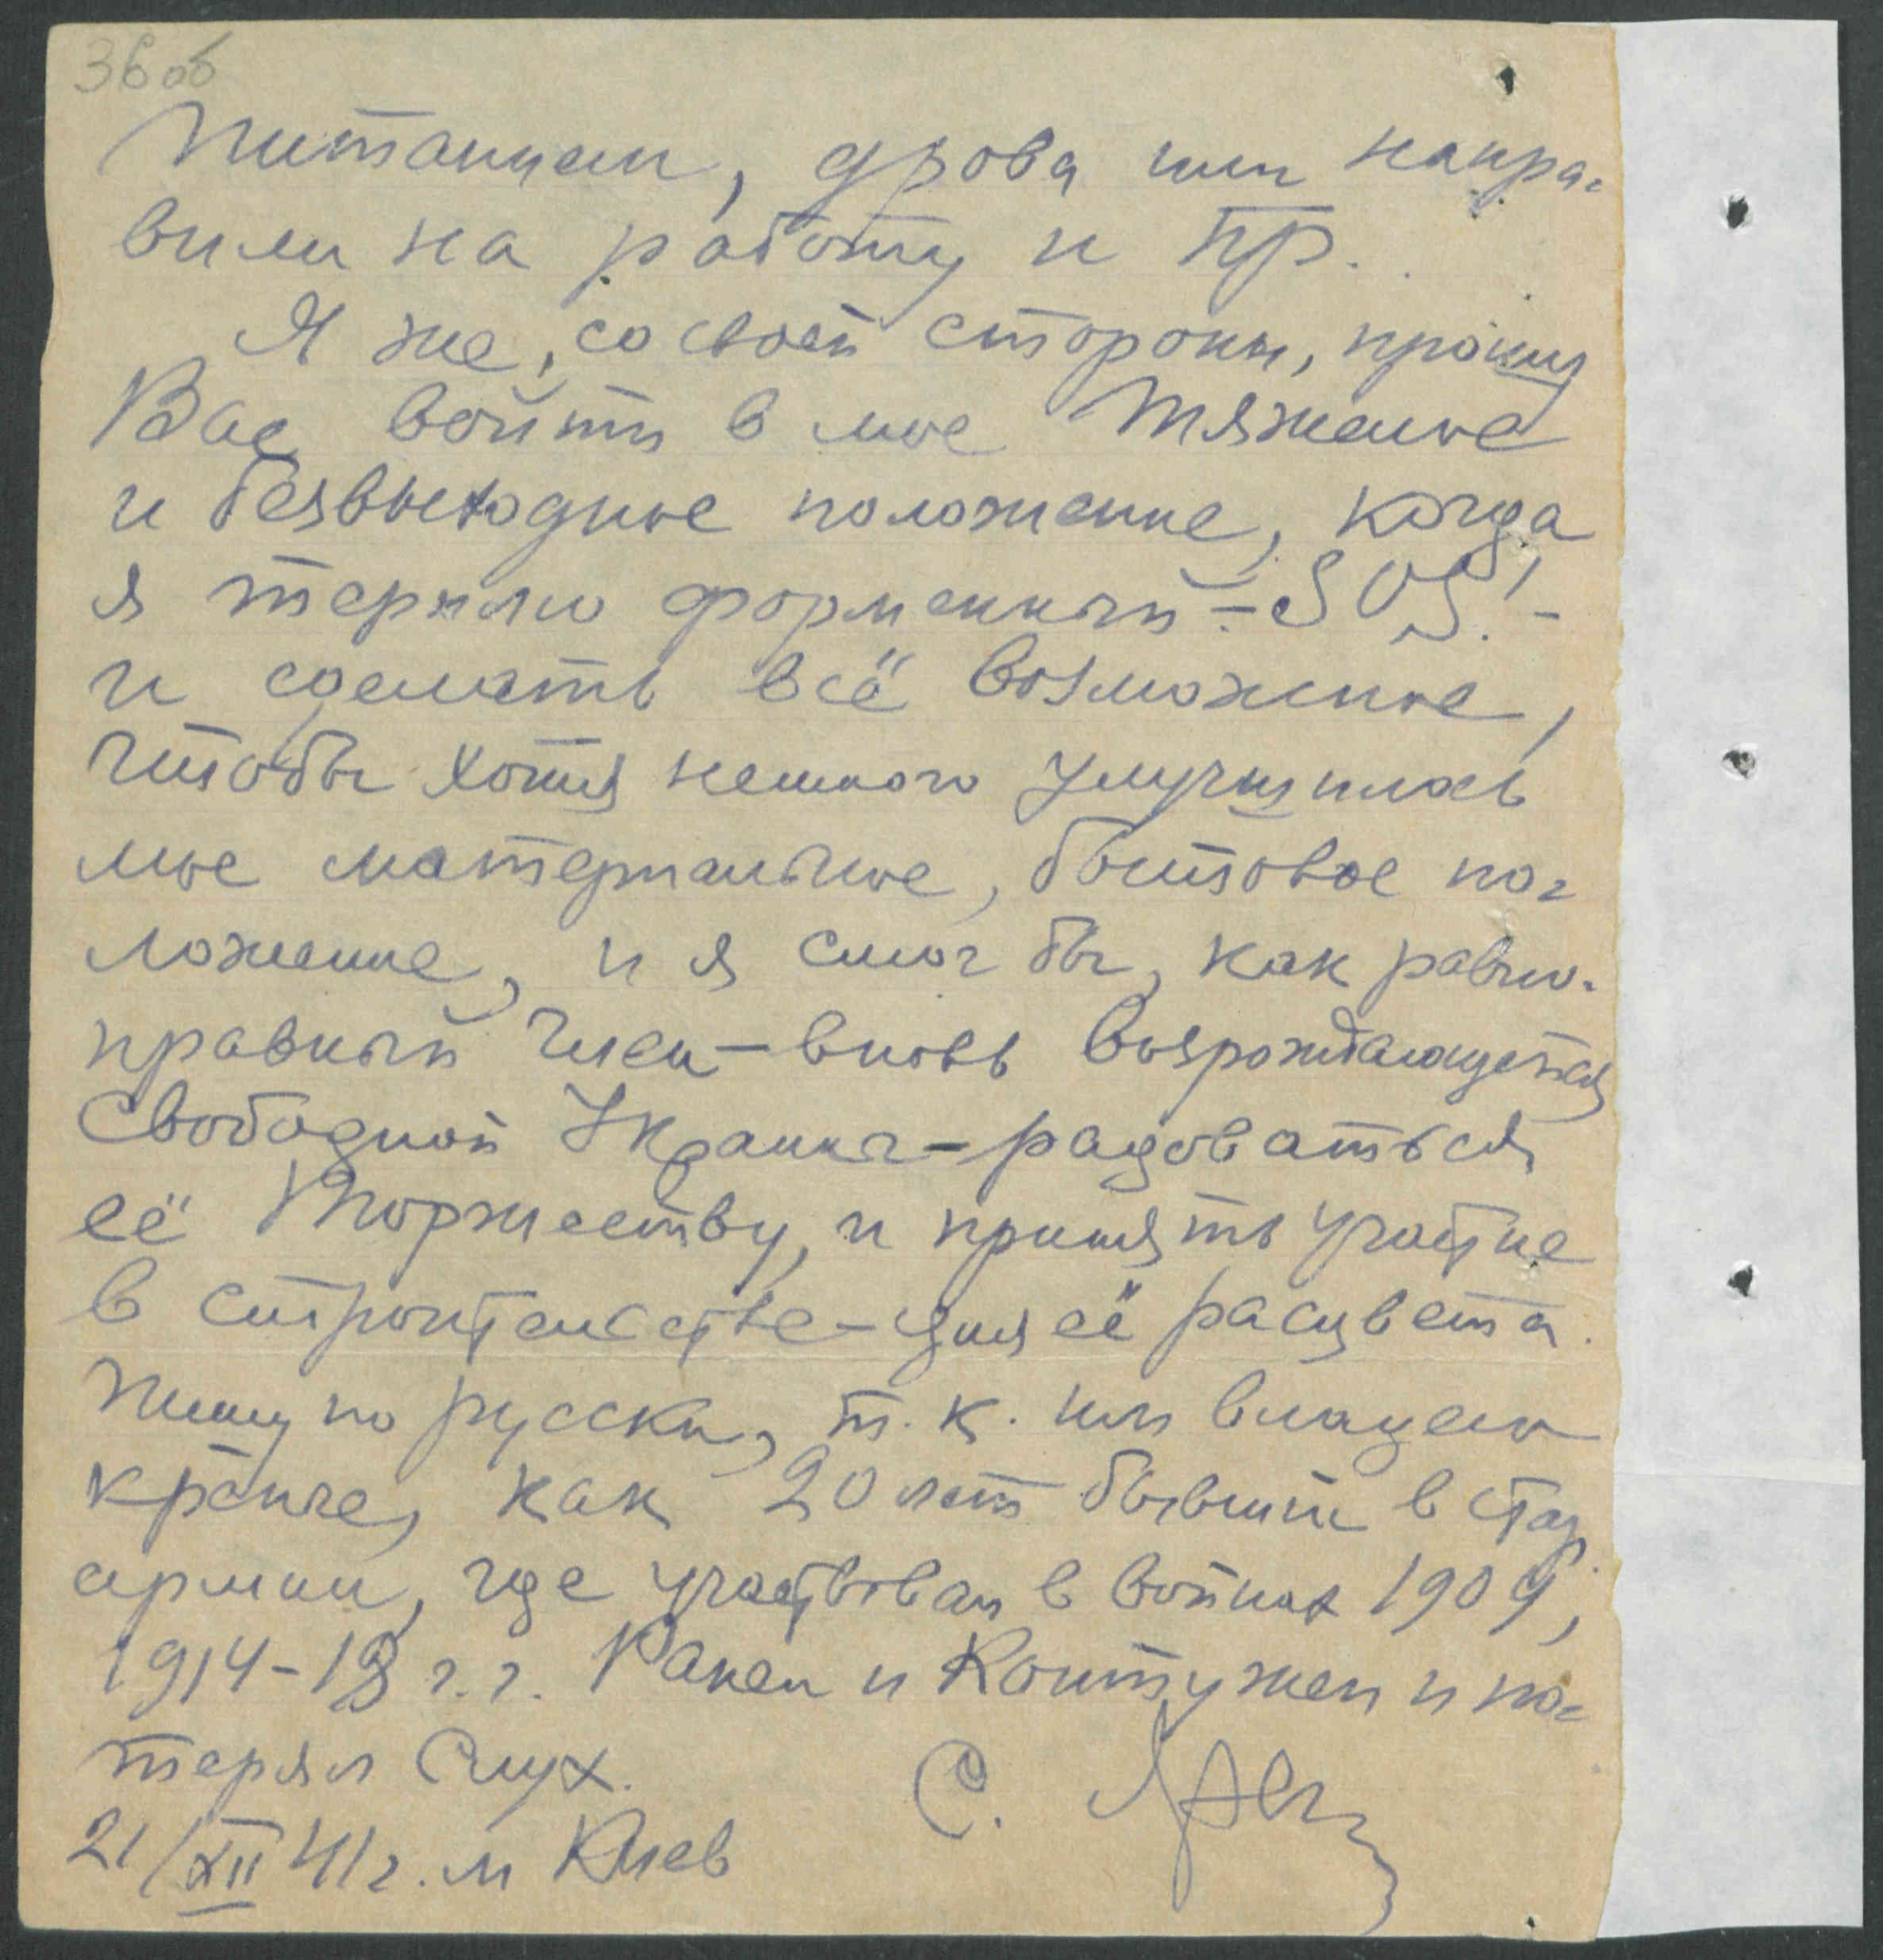 36 об
Питанием, дрова или напра-
вили на работу и пр.
Я же, со своей стороны, прошу
Вас войти в мое тяжелое
и безвыходное положение, когда
я терплю форменный - SOS! -
и сделать всё возможное,
чтобы хотя немного улучшилось
мое материальное, бытовое по-
ложение, и я смог бы, как равно-
правный член - вновь возрождающейся
Свободной Украины - радоваться
её Торжеству, и принять участие
в строительстве - для её расцвета.
Пишу по русски, т. к. им владею
крепче, как 20 лет бывший в стар.
армии, где участвовал в войнах 1904,
1914-18 г.г. Ранен и Контужен и по-
терял Слух.
С.
21/XII 41 г. м Киев